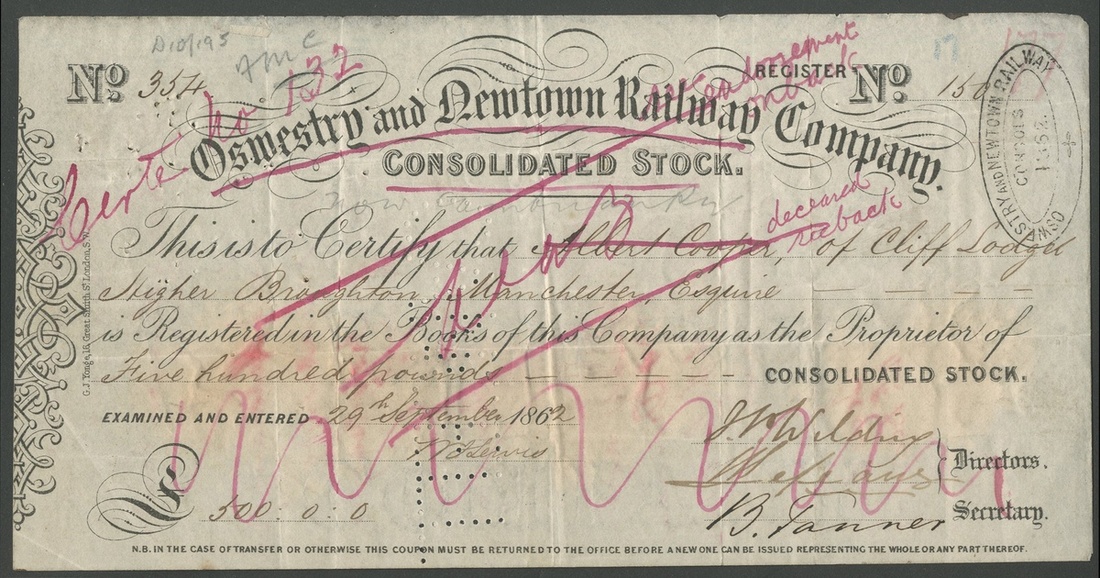 D10/195
No. 354
REGISTER No. 150
Certe No 132
on back
OSWESTRY AND NEWTOWN RAILWAY
CONSOLS
Oswestry and Newtown Railway Company.
CONSOLIDATED STOCK.
deceased
see back
This is to Certify that Albert Cooper, of Cliff Lodge
Higher Broughton, Manchester, Esquire
is Registered in the Books of this Company as the Proprietor of
Five hundred pounds CONSOLIDATED STOCK.
EXAMINED AND ENTERED 29th September 1862
£ 500 : 0 : 0
Directors.
B. Tanner Secretary.
G. J. Yonge, 16, Great Smith St. London, S.W.
N.B. IN THE CASE OF TRANSFER OR OTHERWISE THIS COUPON MUST BE RETURNED TO THE OFFICE BEFORE A NEW ONE CAN BE ISSUED REPRESENTING THE WHOLE OR ANY PART THEREOF.